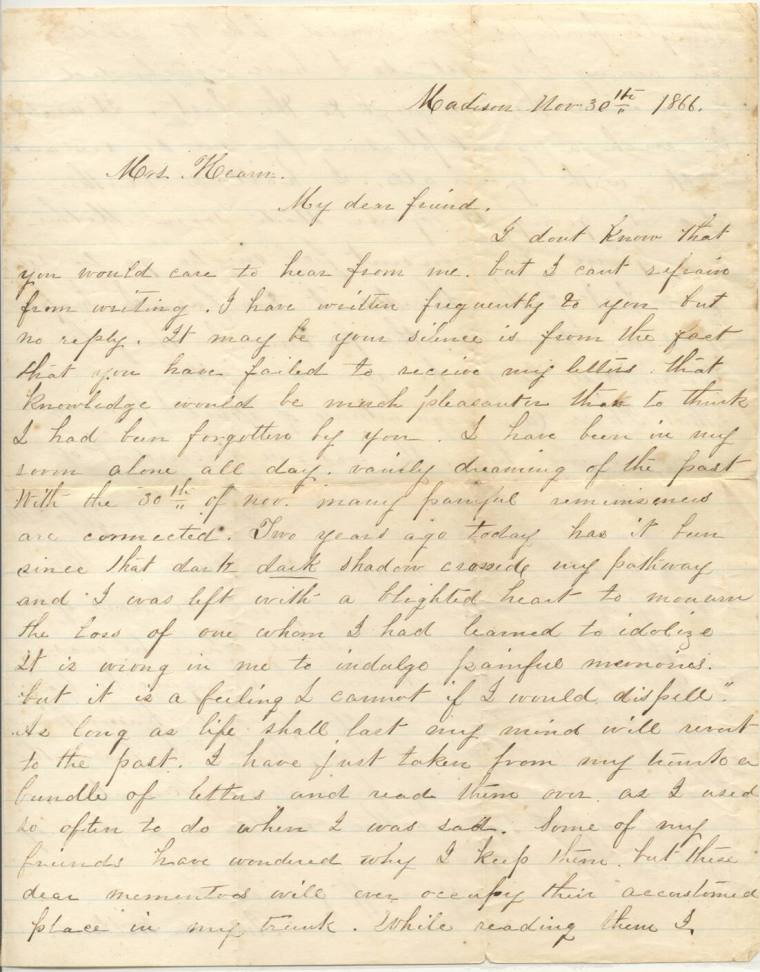 Madison Nov 30th 1866.
Mrs. Hearn.
My dear friend.
I dont know that
you would care to hear from me. but I cant refrain
from writing. I have written frequently to you but
no reply. It may be your silence is from the fact
that you have failed to receive my letters. that
knowledge would be much pleasanter than to think
I had been forgotten by you. I have been in my
room alone all day. vainly dreaming of the past
With the 30th of nov. many painful
are connected. Two years ago today has it been
since that dark dark shadow my pathway
and I was left with a blighted heart to mourn
the loss of one whom I had learned to idolize
It is wrong in me to indulge painful memories.
but it is a feeling I cannot if I would, dispell".
As long as life shall last my mind will revert
to the past. I have just taken from my trunk a
bundle of letters and read them over. as I used
so often to do when I was sad. Some of my
friends have wondered why I keep them. but these
dear mementoes will ever occupy their accustomed
place in my trunk. While reading them I,